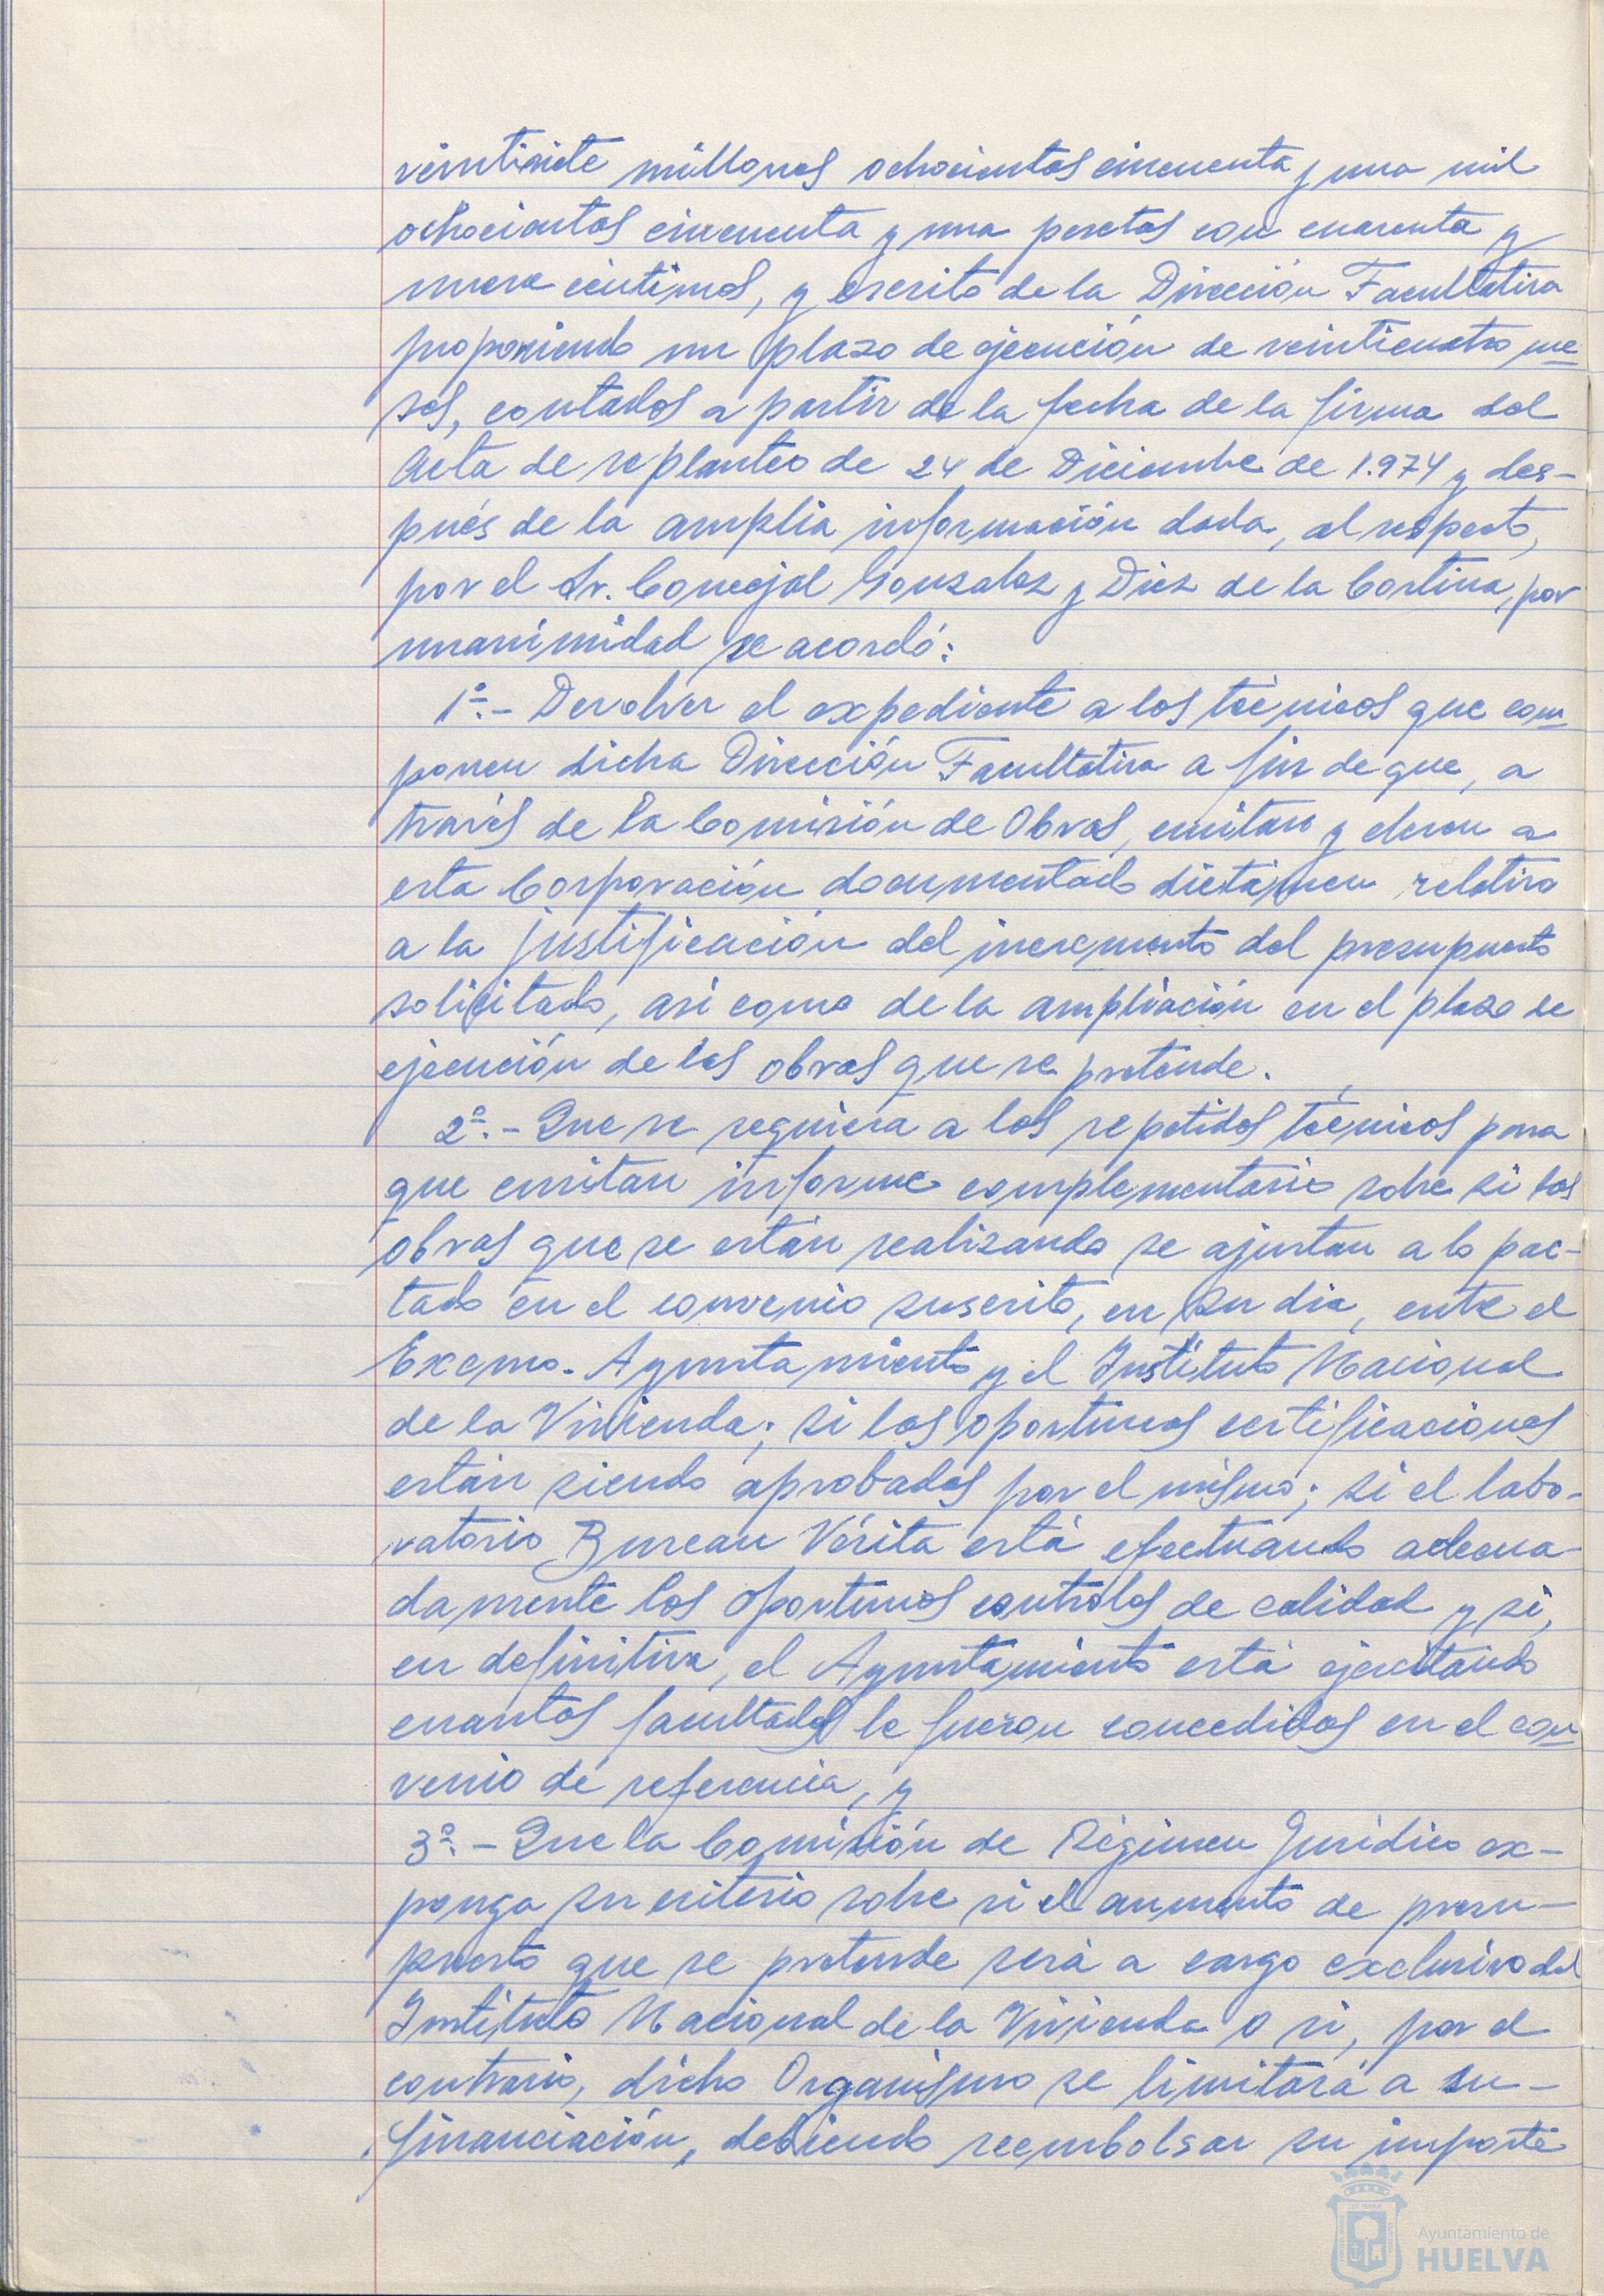 veintisiete millones ochocientas cincuenta y una mil
ochocientas cincuenta y una pesetas con cuarenta y
nueve céntimos, y escrito de la Dirección Facultativa
proponiendo un plazo de ejecución de veinticuatro me-
ses, contados a partir de la fecha de la firma del
Acta de replanteo de 24 de Diciembre de 1.974 y des-
pués de la amplia información dada, al respecto,
por el Sr. Concejal Gonzalez y Diez de la Cortina, por
unanimidad se acordó:
1º.- Devolver el expediente a los técnicos que com-
ponen dicha Dirección Facultativa a fin de que, a
través de la Comisión de Obras, emitan y eleven a
esta Corporación documentado dictámen relativo
a la justificación del incremento del presupuesto
solicitado, asi como de la ampliación en el plazo de
ejecución de las obras que se pretende.
2º.- Que se requiera a los repetidos técnicos para
que emitan informe complementario sobre si las
obras que se están realizando se ajustan a lo pac-
tado en el convenio suscrito, en su dia, entre el
Excmo. Ayuntamiento y el Instituto Nacional
de la Vivienda; si las oportunas certificaciones
están siendo aprobadas por el mismo; si el labo-
ratorio Bureau Vérita está efectuando adecua-
damente los oportunos controles de calidad y si,
en definitiva, el Ayuntamiento está ejercitando
cuantas facultades le fueron concedidas en el con-
venio de referencia, y
3º.- Que la Comisión de Régimen Jurídico ex-
ponga su criterio sobre si el aumento de presu-
puesto que se pretende será a cargo exclusivo del
Instituto Nacional de la Vivienda o si, por el
contrario, dicho Organismo se limitará a su-
financiación, debiendo reembolsar su importe
Ayuntamiento de
HUELVA